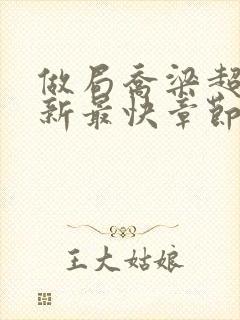 做局乔梁超
新最快章節
王大姑娘